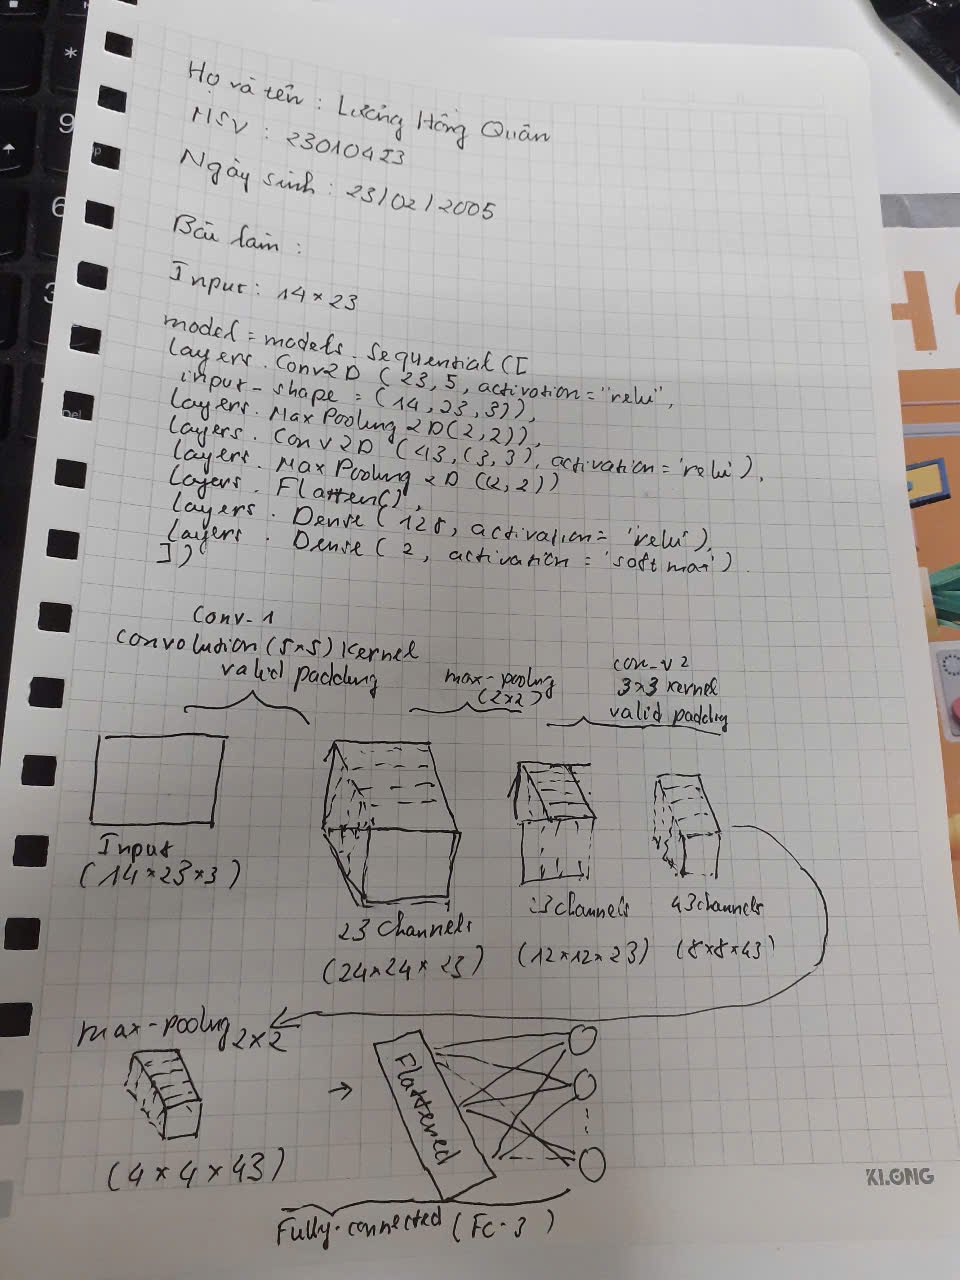 Họ và tên : Lương Hồng Quân
MSV : 23010423
Ngày sinh : 23/02/2005
Bài làm :
Input : 14 × 23
model = models. Sequential ([
layers. Conv2D (23, 5, activation = "relu",
input-shape = (14, 23, 3)),
layers. Max Pooling 2D(2,2)),
layers. Conv2D (43, (3,3), activation = 'relu'),
layers. Max Pooling 2D (2,2))
layers. Flatten(),
layers. Dense (128, activation = 'relu'),
layers. Dense (2, activation = 'soft max')
])
Conv-1
Convolution (5×5) Kernel
valid padding
max-pooling
(2×2)
con-v2
3×3 kernel
valid padding
Input
(14×23×3)
23 Channels
(24×24×23)
23 channels
(12×12×23)
43 channels
(8×8×43)
max-pooling 2×2
(4×4×43)
→
Flattened
Fully-connected (FC-3)
KLONG
*
9
6
3
Del
H